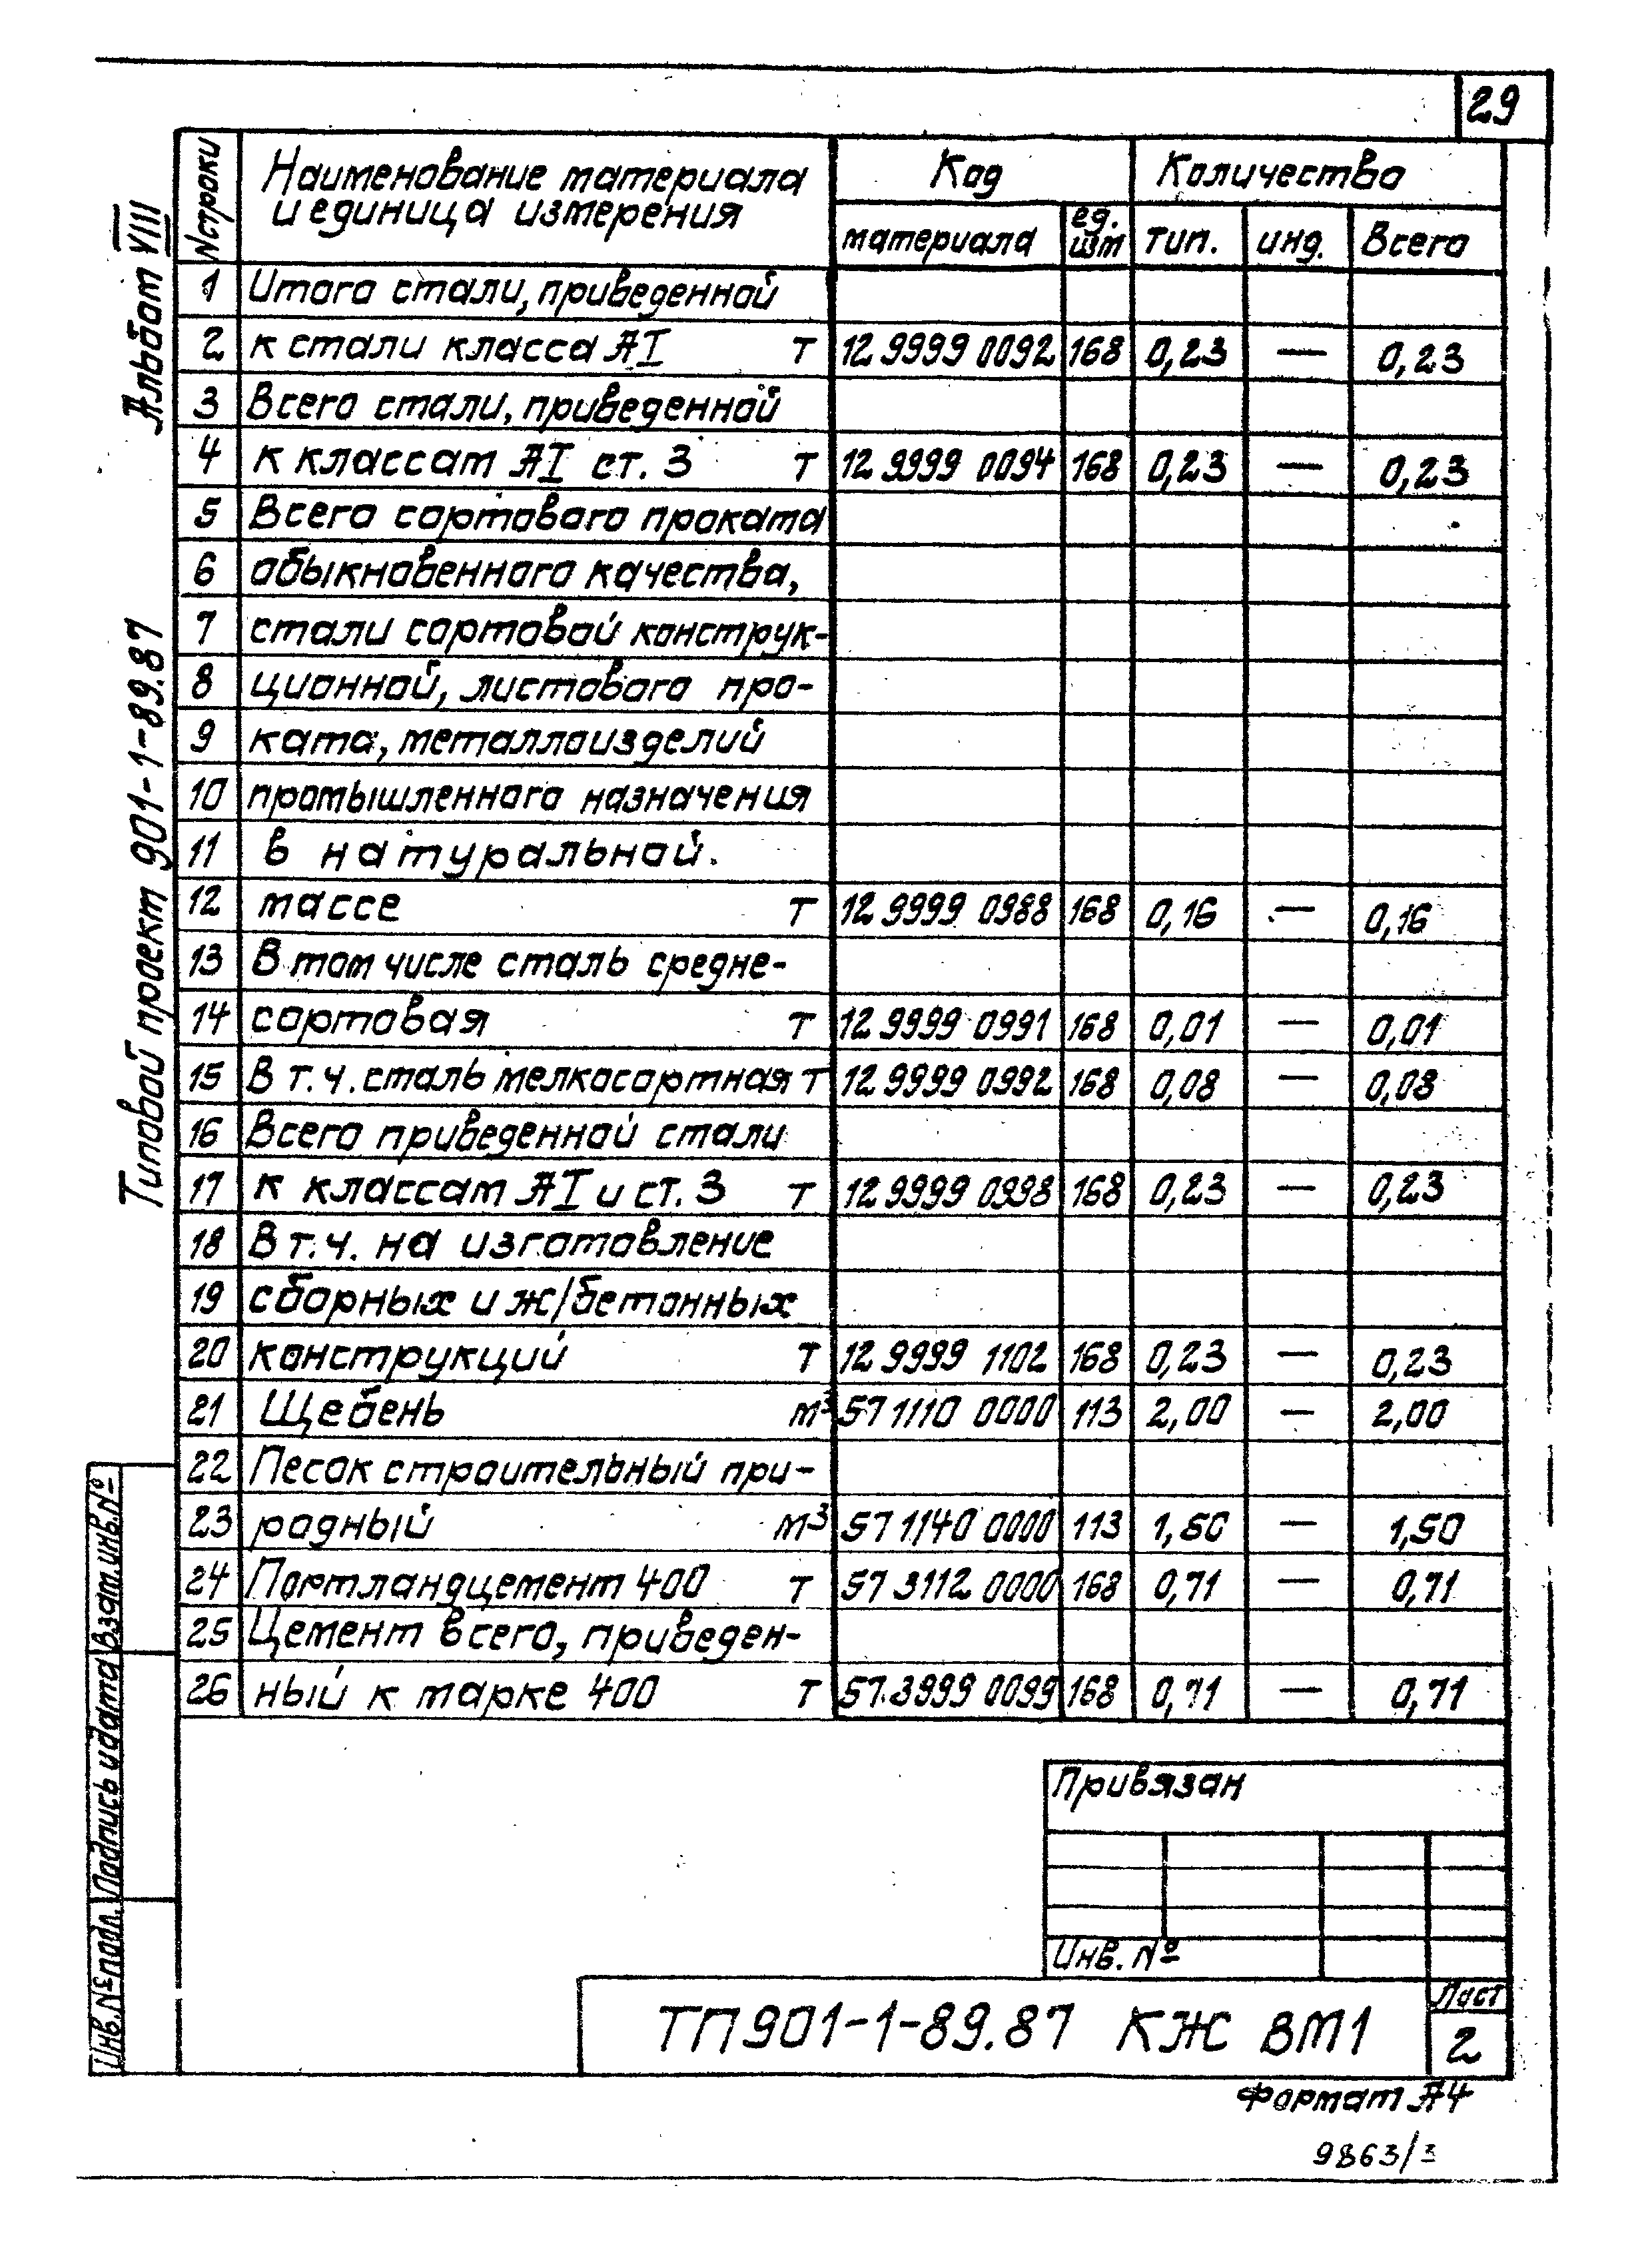 29
Альбом VIII
Типовой проект 901-1-89.87
N строки
Наименование материала
и единица измерения
Код
Количество
материала
ед.
изм
тип.
инд.
Всего
1 Итого стали, приведенной
2 к стали класса АI т 12 9999 0092 168 0,23 — 0,23
3 Всего стали, приведенной
4 к классам АI ст. 3 т 12 9999 0094 168 0,23 — 0,23
5 Всего сортового проката
6 обыкновенного качества,
7 стали сортовой конструк-
8 ционной, листового про-
9 ката, металлоизделий
10 промышленного назначения
11 в натуральной.
12 массе т 12 9999 0988 168 0,16 — 0,16
13 В том числе сталь средне-
14 сортовая т 12 9999 0991 168 0,01 — 0,01
15 В т.ч. сталь мелкосортная т 12 9999 0992 168 0,08 — 0,08
16 Всего приведенной стали
17 к классам АI и ст. 3 т 12 9999 0998 168 0,23 — 0,23
18 В т.ч. на изготовление
19 сборных и ж/бетонных
20 конструкций т 12 9999 1102 168 0,23 — 0,23
21 Щебень м³ 57 1110 0000 113 2,00 — 2,00
22 Песок строительный при-
23 родный м³ 57 1140 0000 113 1,50 — 1,50
24 Портландцемент 400 т 57 3112 0000 168 0,71 — 0,71
25 Цемент всего, приведен-
26 ный к марке 400 т 57.3999 0099 168 0,71 — 0,71
Взам. инв. №
Подпись и дата
Инв. № подл.
Привязан
Инв. №
ТП 901-1-89.87 КЖ ВМ1
Лист
2
Формат А4
9863/3